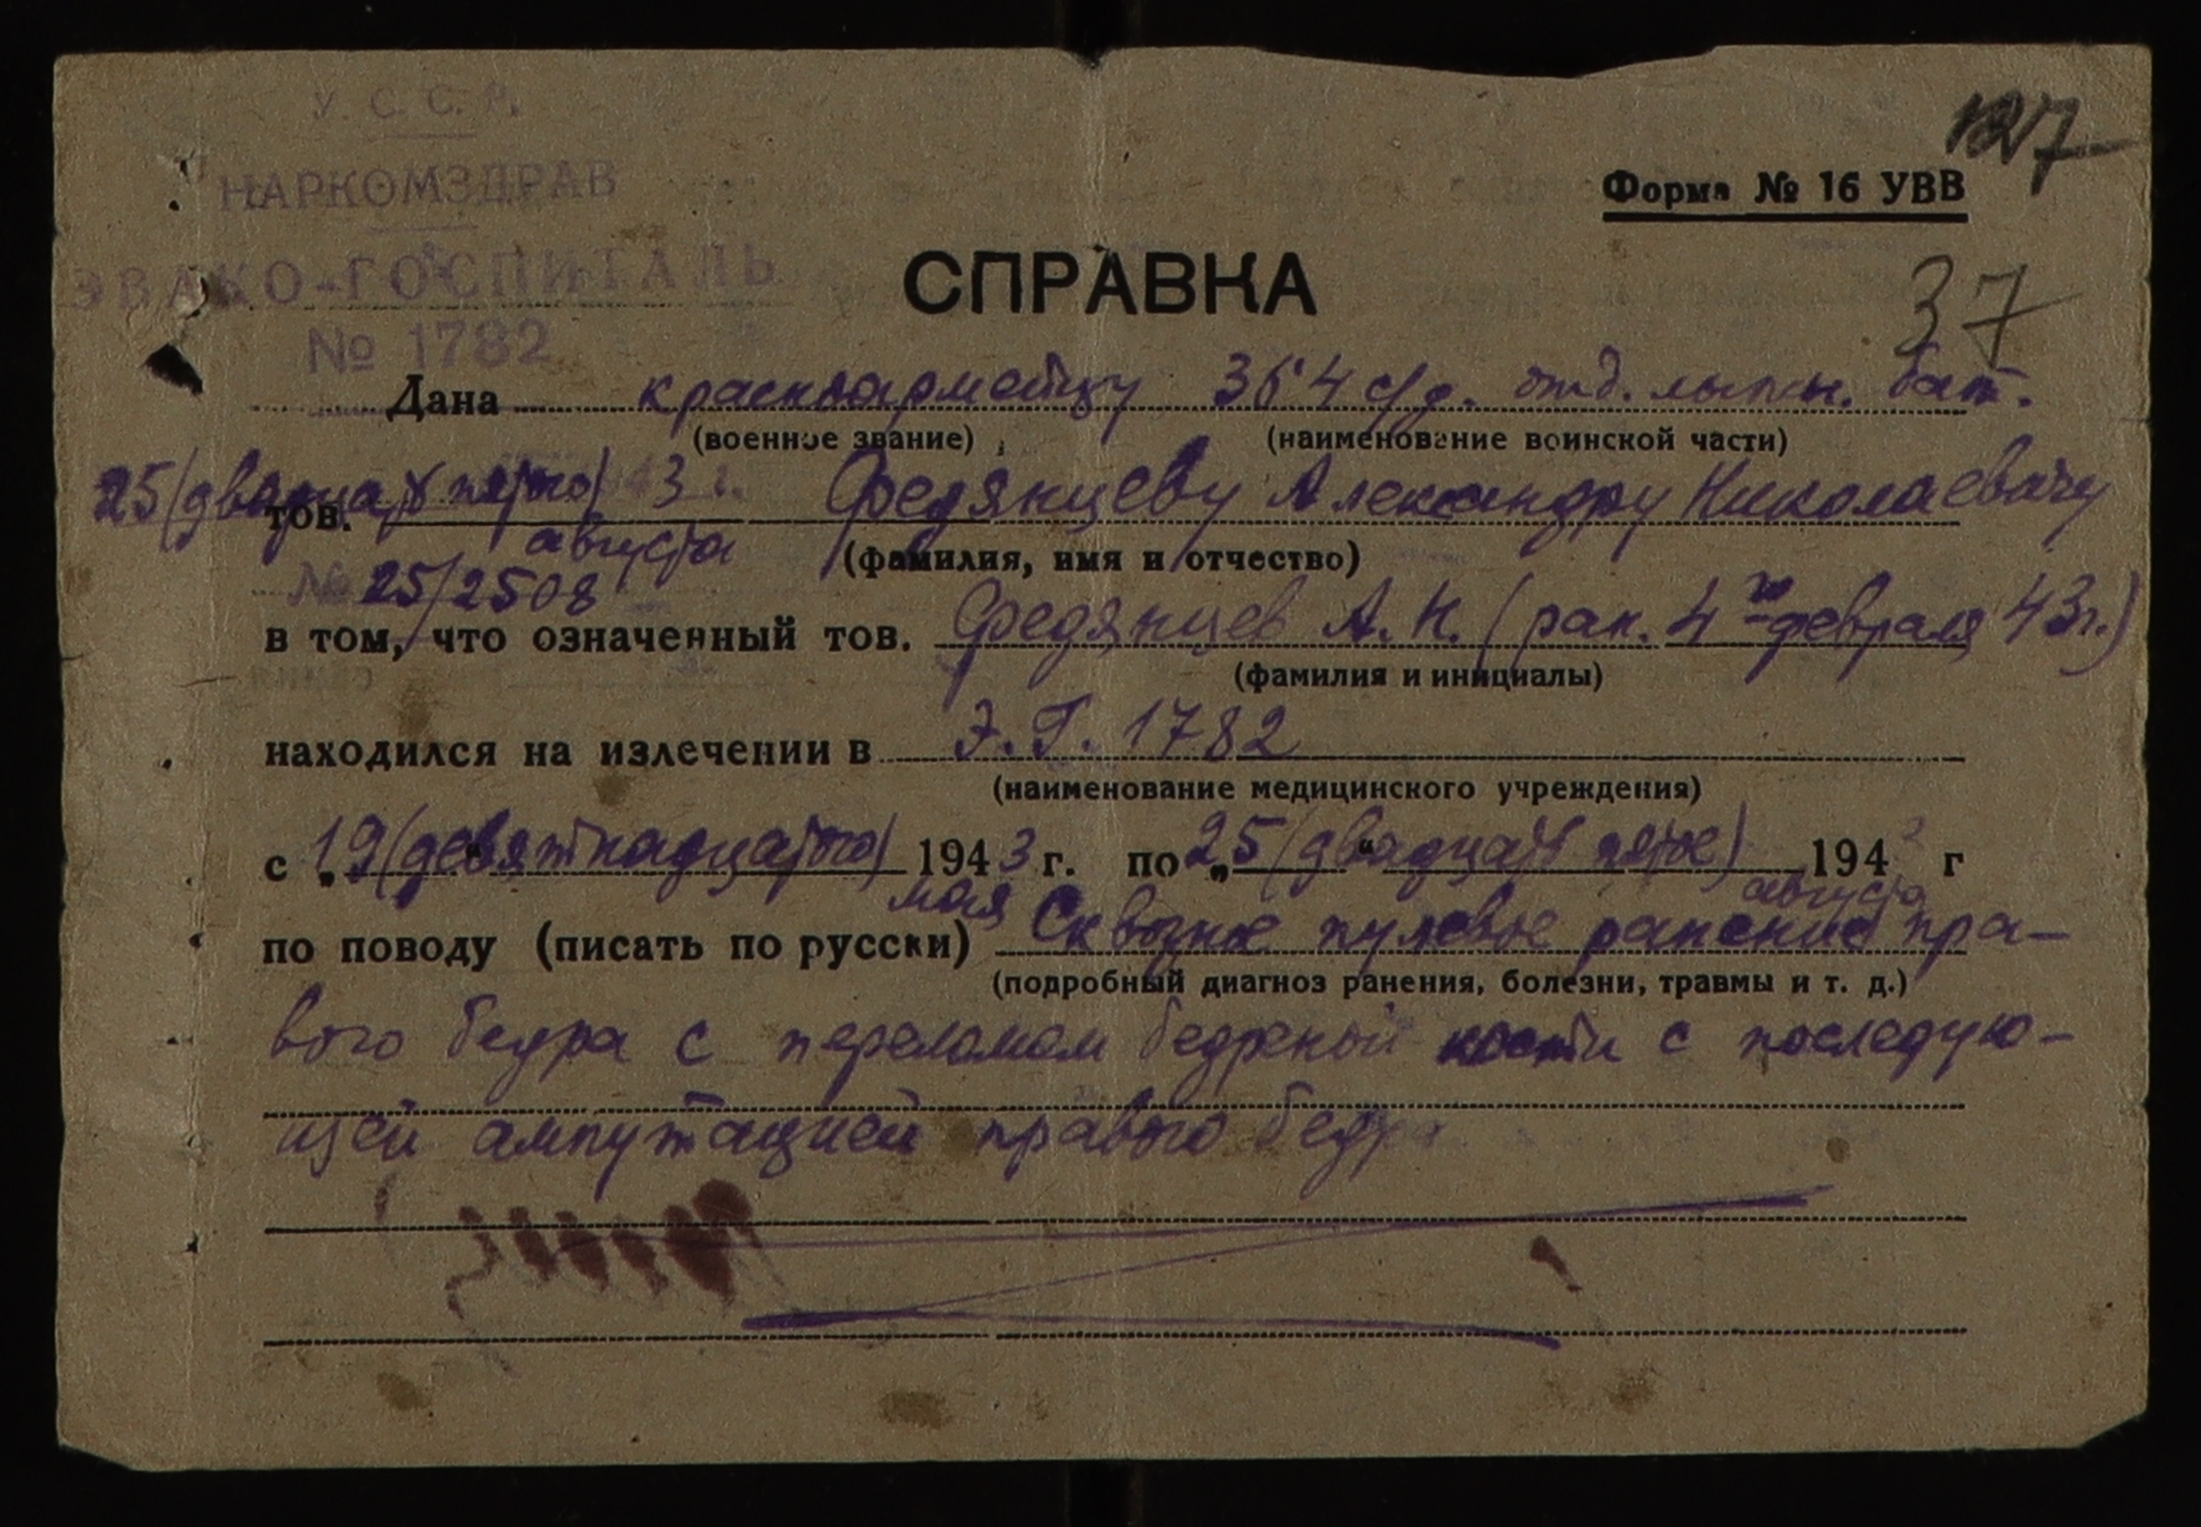 У. С. С. Р.
НАРКОМЗДРАВ
ЭВАКО-ГОСПИТАЛЬ
№ 1782
127
Форма № 16 УВВ
37
СПРАВКА
Дана красноармейцу 364 с/д. отд. лыжн. бат.
(военное звание) (наименование воинской части)
25 (двадцать пятого) 43 г.
августа
тов. Федянцеву Александру Николаевичу
(фамилия, имя и отчество)
№ 25/2508
в том, что означенный тов. Федянцев А. Н. (ран. 4го февраля 43г.)
(фамилия и инициалы)
находился на излечении в Э.Г. 1782
(наименование медицинского учреждения)
с „19 (девятнадцатого) мая 1943 г. по „25 (двадцать пятое) августа 1943 г
по поводу (писать по русски) Сквозное пулевое ранение пра-
(подробный диагноз ранения, болезни, травмы и т. д.)
вого бедра с переломом бедреной кости с последую-
щей ампутацией правого бедра